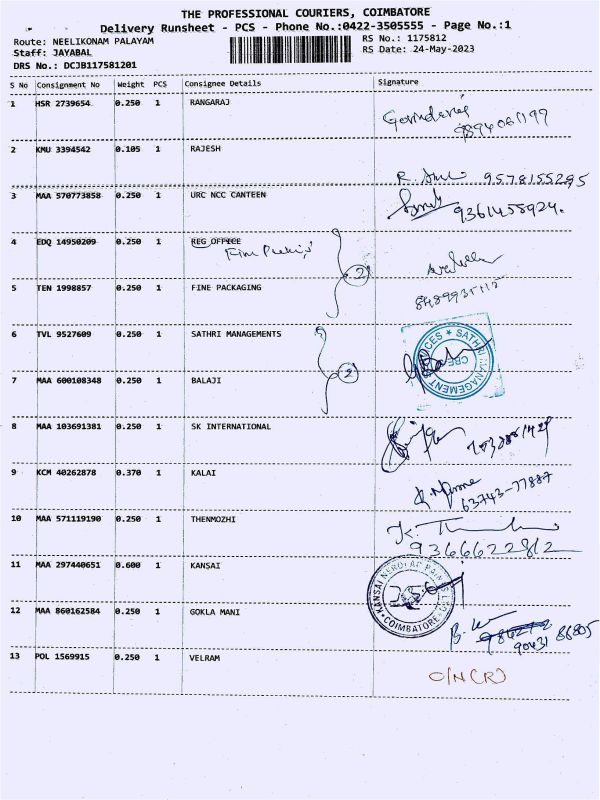 THE PROFESSIONAL COURIERS, COIMBATORE
Delivery Runsheet - PCS - Phone No.:0422-3505555 - Page No.:1
Route: NEELIKONAM PALAYAM
RS No.: 1175812
Staff: JAYABAL
RS Date: 24-May-2023
DRS No.: DCJB117581201
S No Consignment No Weight PCS Consignee Details Signature
1 HSR 2739654 0.250 1 RANGARAJ
2 KMU 3394542 0.105 1 RAJESH
9578155295
3 MAA 570773858 0.250 1 URC NCC CANTEEN
9361458924.
4 EDQ 14950209 0.250 1 REG OFFICE
2
5 TEN 1998857 0.250 1 FINE PACKAGING
6 TVL 9527609 0.250 1 SATHRI MANAGEMENTS
SATHRI MANAGEMENT
CBE
2
7 MAA 600108348 0.250 1 BALAJI
8 MAA 103691381 0.250 1 SK INTERNATIONAL
9 KCM 40262878 0.370 1 KALAI
63743-77887
10 MAA 571119190 0.250 1 THENMOZHI
9366622812
11 MAA 297440651 0.600 1 KANSAI
KANSAI NEROLAC PAINTS LTD
COIMBATORE
12 MAA 860162584 0.250 1 GOKLA MANI
90431 86805
13 POL 1569915 0.250 1 VELRAM
O/N(R)